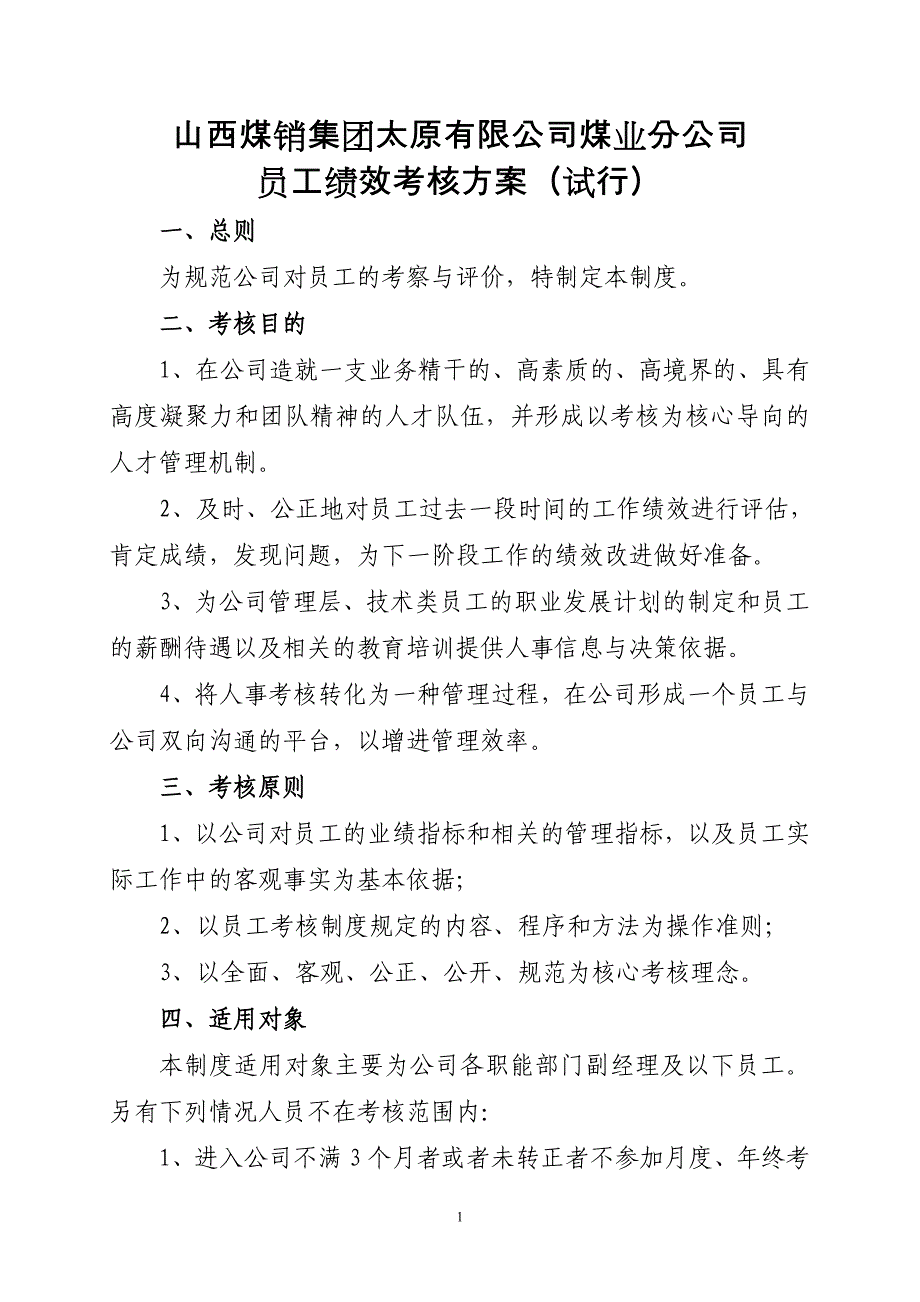 山西煤销集团太原有限公司煤业分公司
员工绩效考核方案（试行）
一、总则
为规范公司对员工的考察与评价，特制定本制度。
二、考核目的
1、在公司造就一支业务精干的、高素质的、高境界的、具有
高度凝聚力和团队精神的人才队伍，并形成以考核为核心导向的
人才管理机制。
2、及时、公正地对员工过去一段时间的工作绩效进行评估，
肯定成绩，发现问题，为下一阶段工作的绩效改进做好准备。
3、为公司管理层、技术类员工的职业发展计划的制定和员工
的薪酬待遇以及相关的教育培训提供人事信息与决策依据。
4、将人事考核转化为一种管理过程，在公司形成一个员工与
公司双向沟通的平台，以增进管理效率。
三、考核原则
1、以公司对员工的业绩指标和相关的管理指标，以及员工实
际工作中的客观事实为基本依据；
2、以员工考核制度规定的内容、程序和方法为操作准则；
3、以全面、客观、公正、公开、规范为核心考核理念。
四、适用对象
本制度适用对象主要为公司各职能部门副经理及以下员工。
另有下列情况人员不在考核范围内：
1、进入公司不满 3 个月者或者未转正者不参加月度、年终考
1